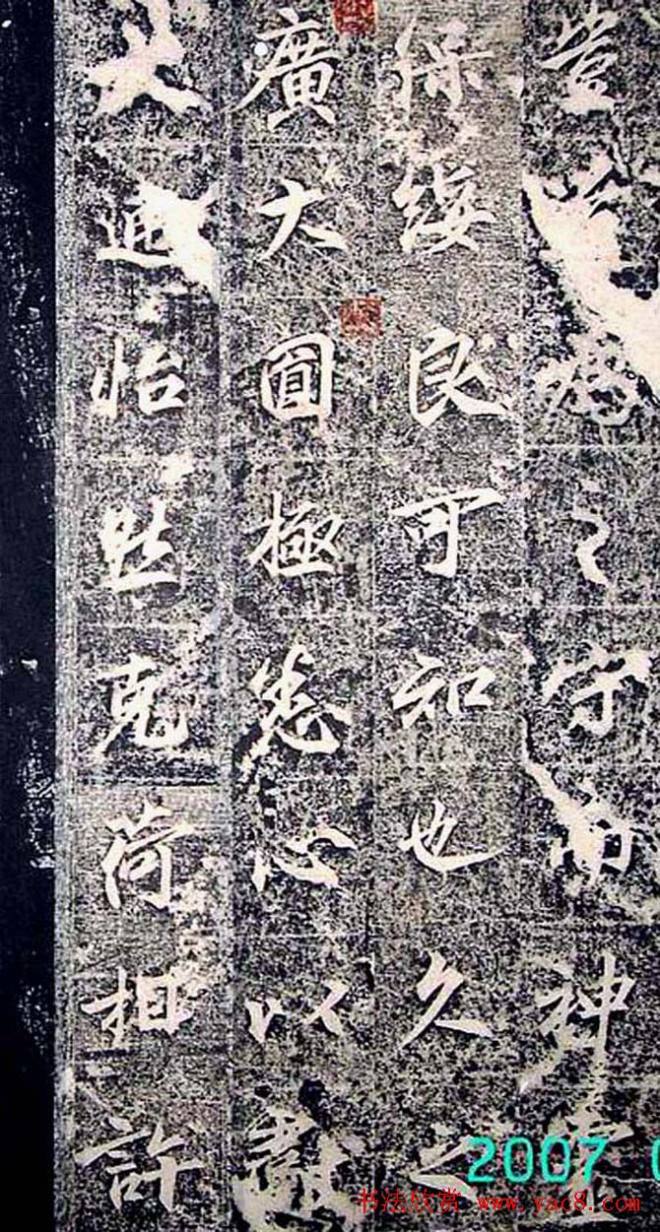 豈 為之守而神
保綏良可知也久之
廣大圓極悉心以獻
大通怡然克荷相許
2007 0
书法欣赏 www.yac8.com